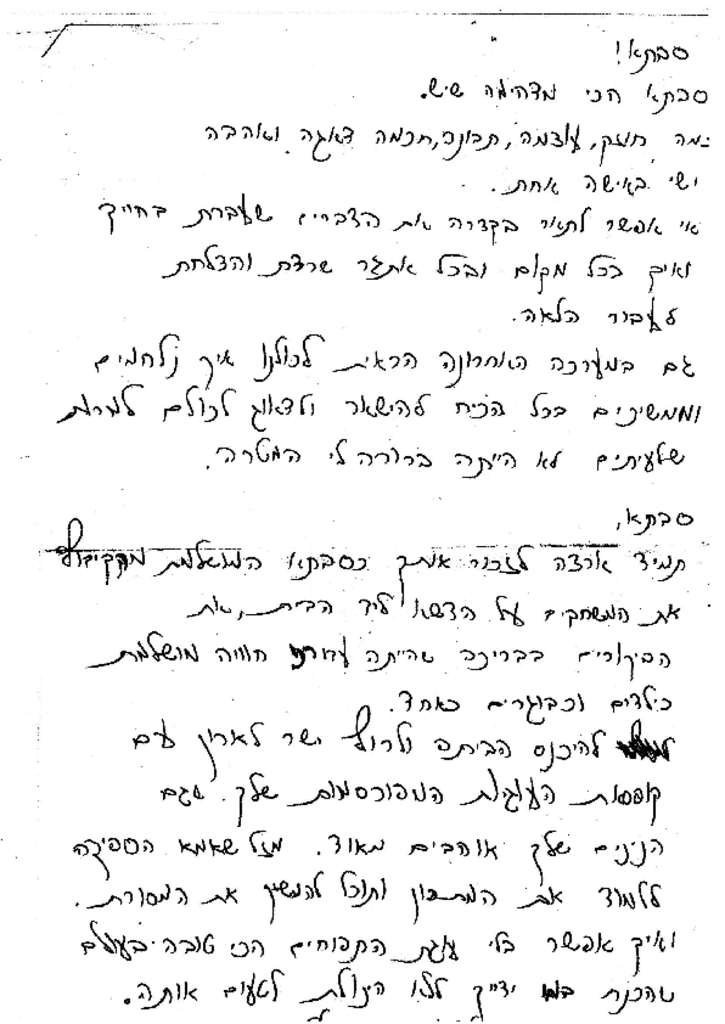 סבתא!
סבתא הכי מדהימה שיש.
כמה חוזק, עוצמה, תבונה, חכמה דאגה ואהבה
יש באישה אחת.
אי אפשר לתאר בקצרה את הדברים שעברת בחייך
ואיך בכל מקום ובכל אתגר שרדת והצלחת
לעבור הלאה.
גם במערכה האחרונה הראית לכולנו איך נלחמים
וממשיכים בכל הכוח להישאר ולדאוג לכולם למרות
שלעיתים לא הייתה ברורה לי המטרה.
סבתא,
תמיד ארצה לזכור אותך כסבתא המושלמת מהקיבוץ
את המשחקים על הדשא ליד הבית, את
הביקורים בבריכה שהייתה עבורנו חוויה מושלמת
כילדים וכבוגרים כאחד.
להיכנס הביתה ולרוץ ישר לארון עם
קופסאת העוגיות המפורסמות שלך. שגם
הנינים שלך אוהבים מאוד. מזל שאמא הספיקה
ללמוד את המתכון ותוכל להמשיך את המסורת.
ואיך אפשר בלי עוגת התפוחים הכי טובה בעולם
שהכנת במו ידייך ללא היכולת לטעום אותה.